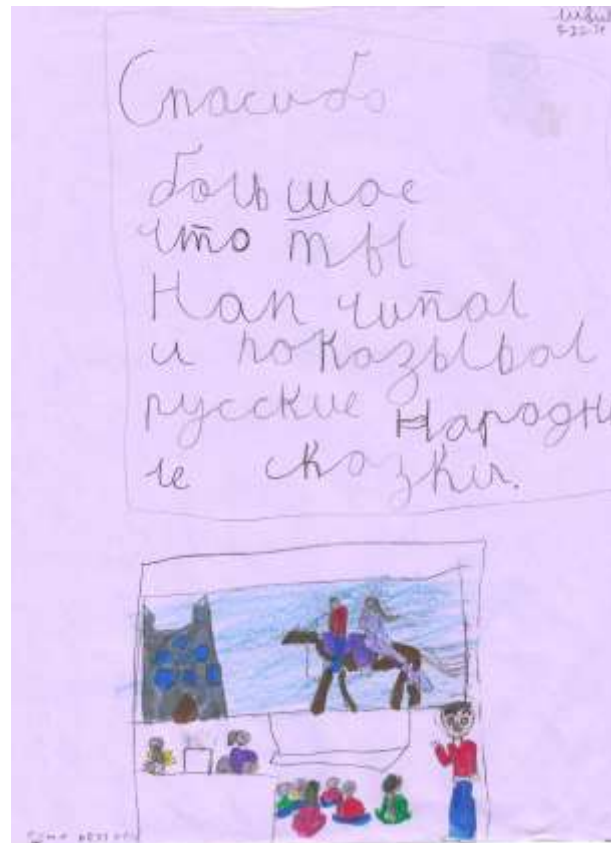 Спасибо
большое
что ты
Нам читал
и показывал
русские Народн
ые сказки.